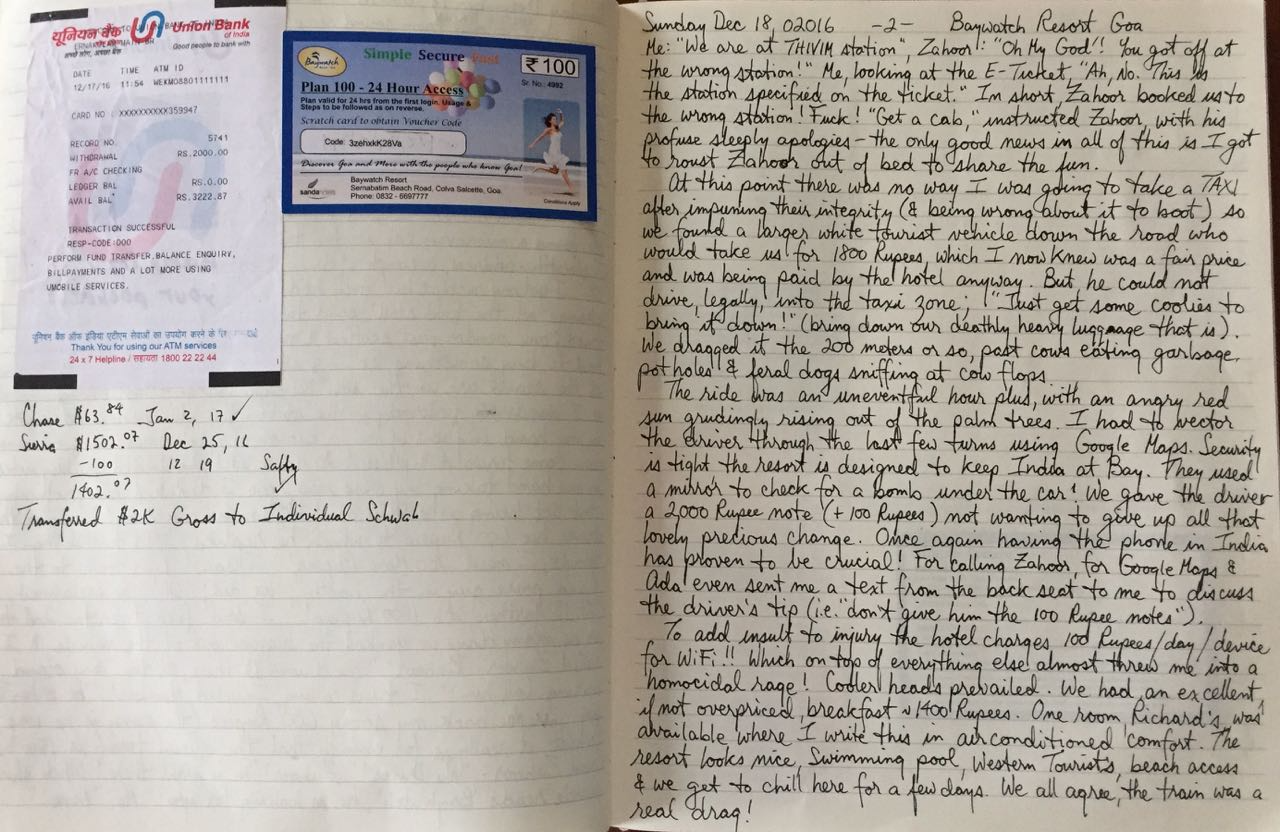 यूनियन बैंक Union Bank
of India
अच्छे लोग, अच्छा बैंक Good people to bank with
DATE TIME ATM ID
12/17/16 11:54 WEKM08801111111
CARD NO : XXXXXXXXXX359947
RECORD NO. 5741
WITHDRAWAL RS.2000.00
FR A/C CHECKING
LEDGER BAL RS.0.00
AVAIL BAL RS.3222.87
TRANSACTION SUCCESSFUL
RESP-CODE:000
PERFORM FUND TRANSFER,BALANCE ENQUIRY,
BILLPAYMENTS AND A LOT MORE USING
UMOBILE SERVICES.
यूनियन बैंक ऑफ इंडिया एटीएम सेवाओं का उपयोग करने के लिए
Thank You for using our ATM services
24 x 7 Helpline / सहायता 1800 22 22 44
Baywatch
Simple Secure Fast
₹ 100
Sr. No.: 4992
Plan 100 - 24 Hour Access
Plan valid for 24 hrs from the first login. Usage &
Steps to be followed as on reverse.
Scratch card to obtain Voucher Code
Code: 3zehxkK28Va
Discover Goa and More with the people who know Goa!
Baywatch Resort
Sernabatim Beach Road, Colva Salcette, Goa.
Phone: 0832 - 6697777
Conditions Apply
Chase $63.84 Jan 2, 17 ✓
Sierra $1502.07 Dec 25, 16
-100 12 19 Safty
1402.07 ✓
Transferred $2K Gross to Individual Schwab
Sunday Dec 18, 02016 -2- Baywatch Resort Goa
Me: "We are at THIVIM station", Zahoor: "Oh My God! You got off at
the wrong station!" Me, looking at the E-Ticket, "Ah, No. This is
the station specified on the ticket." In short, Zahoor booked us to
the wrong station! Fuck! "Get a cab," instructed Zahoor, with his
profuse sleeply apologies - the only good news in all of this is I got
to roust Zahoor out of bed to share the fun.
At this point there was no way I was going to take a TAXI
after impuning their integrity (& being wrong about it to boot) so
we found a larger white tourist vehicle down the road who
would take us for 1800 Rupees, which I now knew was a fair price
and was being paid by the hotel anyway. But, he could not
drive, legally, into the taxi zone; "Just get some coolies to
bring it down!" (bring down our deathly heavy luggage that is).
We dragged it the 200 meters or so, past cows eating garbage,
potholes & feral dogs sniffing at cow flops.
The ride was an uneventful hour plus, with an angry red
sun grudingly rising out of the palm trees. I had to vector
the driver through the last few turns using Google Maps. Security
is tight the resort is designed to keep India at Bay. They used
a mirror to check for a bomb under the car! We gave the driver
a 2,000 Rupee note (+ 100 Rupees) not wanting to give up all that
lovely precious change. Once again having the phone in India
has proven to be crucial! For calling Zahoor, for Google Maps &
Ada even sent me a text from the back seat to me to discuss
the driver's tip (i.e. "don't give him the 100 Rupee notes").
To add insult to injury the hotel charges 100 Rupees/day/device
for WiFi!! Which on top of everything else almost threw me into a
homocidal rage! Cooler heads prevailed. We had an excellent,
if not overpriced, breakfast ~1400 Rupees. One room, Richard's, was
available where I write this in airconditioned comfort. The
resort looks nice, Swimming pool, Western Tourists, beach access
& we get to chill here for a few days. We all agree, the train was a
real drag!